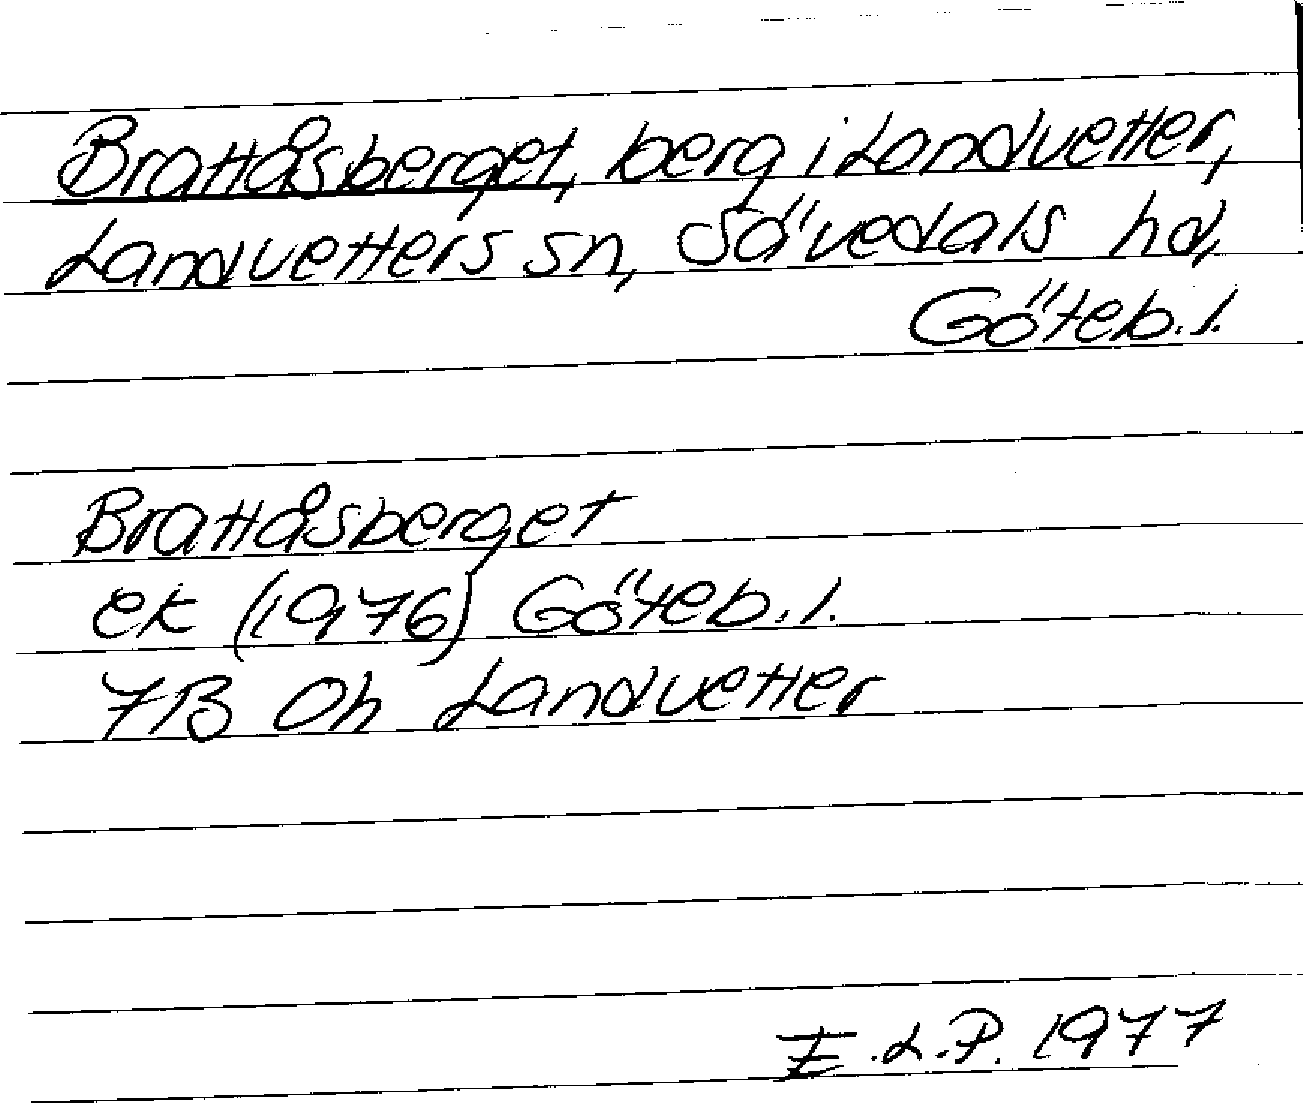 Brattåsberget, berg i Landvetter,
Landvetters sn, Sävedals hd,
Göteb. l.
Brattåsberget
ek (1976) Göteb. l.
7B Oh Landvetter
E.L.P. 1977